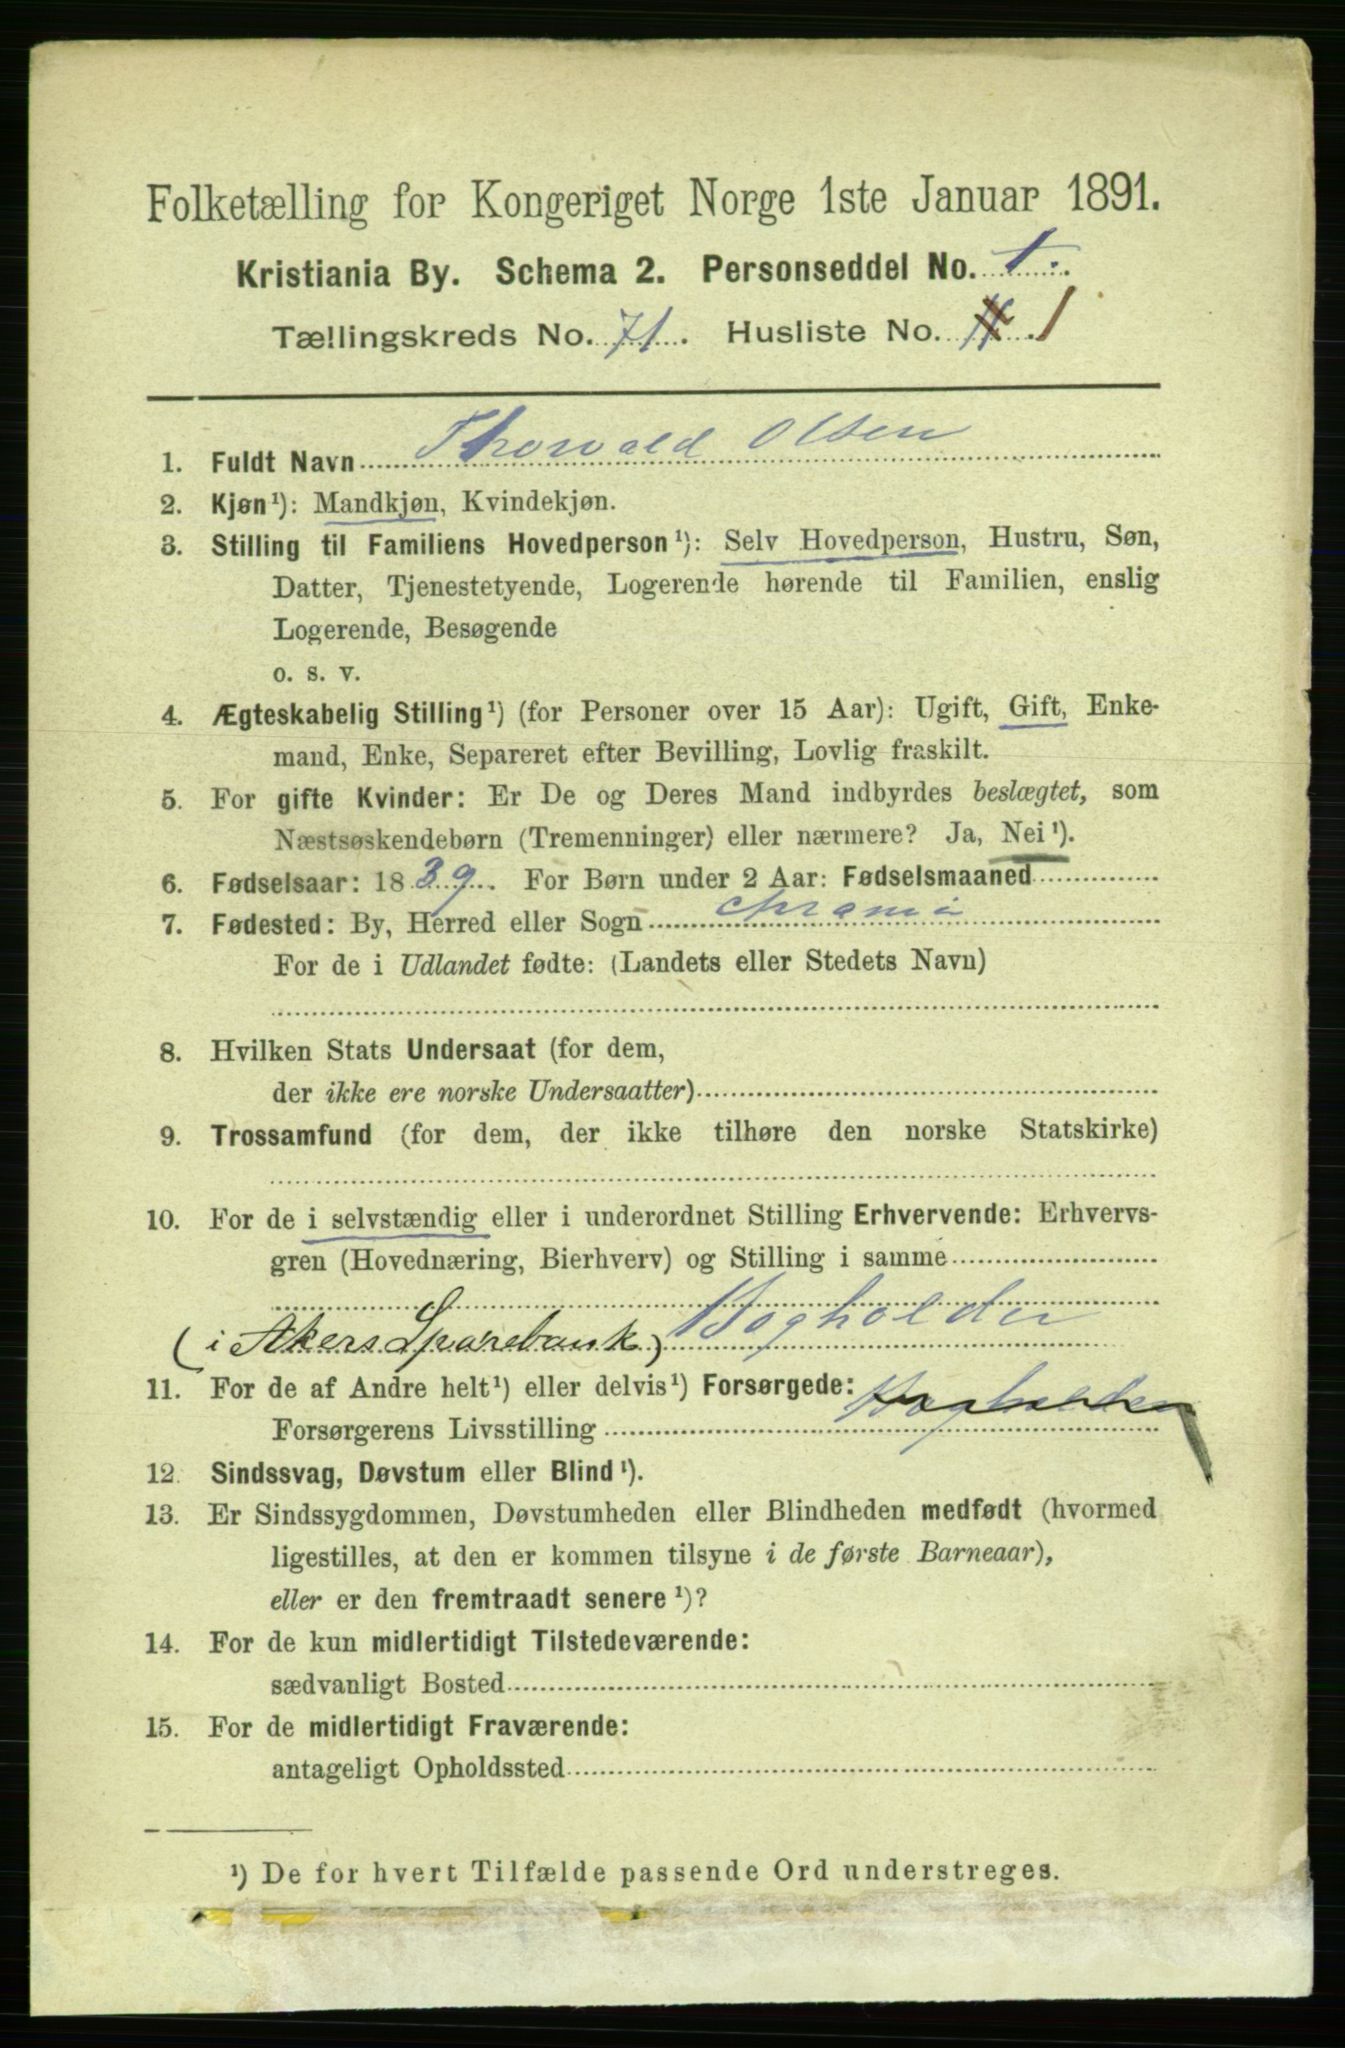 Folketælling for Kongeriget Norge 1ste Januar 1891.
Kristiania By. Schema 2. Personseddel No. 1.
Tællingskreds No. 71. Husliste No. 1
1. Fuldt Navn Thorvald Olsen
2. Kjøn¹): Mandkjøn, Kvindekjøn.
3. Stilling til Familiens Hovedperson¹): Selv Hovedperson, Hustru, Søn,
Datter, Tjenestetyende, Logerende hørende til Familien, enslig
Logerende, Besøgende
o. s. v.
4. Ægteskabelig Stilling¹) (for Personer over 15 Aar): Ugift, Gift, Enke-
mand, Enke, Separeret efter Bevilling, Lovlig fraskilt.
5. For gifte Kvinder: Er De og Deres Mand indbyrdes beslægtet, som
Næstsøskendebørn (Tremenninger) eller nærmere? Ja, Nei¹).
6. Fødselsaar: 1839. For Børn under 2 Aar: Fødselsmaaned
7. Fødested: By, Herred eller Sogn Chrania
For de i Udlandet fødte: (Landets eller Stedets Navn)
8. Hvilken Stats Undersaat (for dem,
der ikke ere norske Undersaatter)
9. Trossamfund (for dem, der ikke tilhøre den norske Statskirke)
10. For de i selvstændig eller i underordnet Stilling Erhvervende: Erhvervs-
gren (Hovednæring, Bierhverv) og Stilling i samme
(i Akers Sparebank) Bogholder
11. For de af Andre helt¹) eller delvis¹) Forsørgede:
Forsørgerens Livsstilling Bogholder
12. Sindssvag, Døvstum eller Blind¹).
13. Er Sindssygdommen, Døvstumheden eller Blindheden medfødt (hvormed
ligestilles, at den er kommen tilsyne i de første Barneaar),
eller er den fremtraadt senere¹)?
14. For de kun midlertidigt Tilstedeværende:
sædvanligt Bosted
15. For de midlertidigt Fraværende:
antageligt Opholdssted
¹) De for hvert Tilfælde passende Ord understreges.